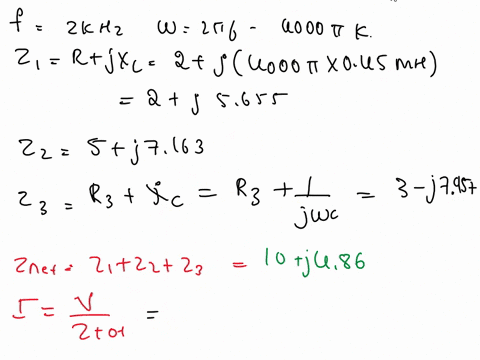 f = 2KHz ω = 2πf - 4000 π K.
Z1 = R + jXc = 2 + j (4000 π X 0.45 mH)
= 2 + j 5.655
Z2 = 5 + j7.163
Z3 = R3 + jc = R3 + 1/jωc = 3 - j7.957
Znet = Z1 + Z2 + Z3 = 10 + j4.86
I = V/Ztot =